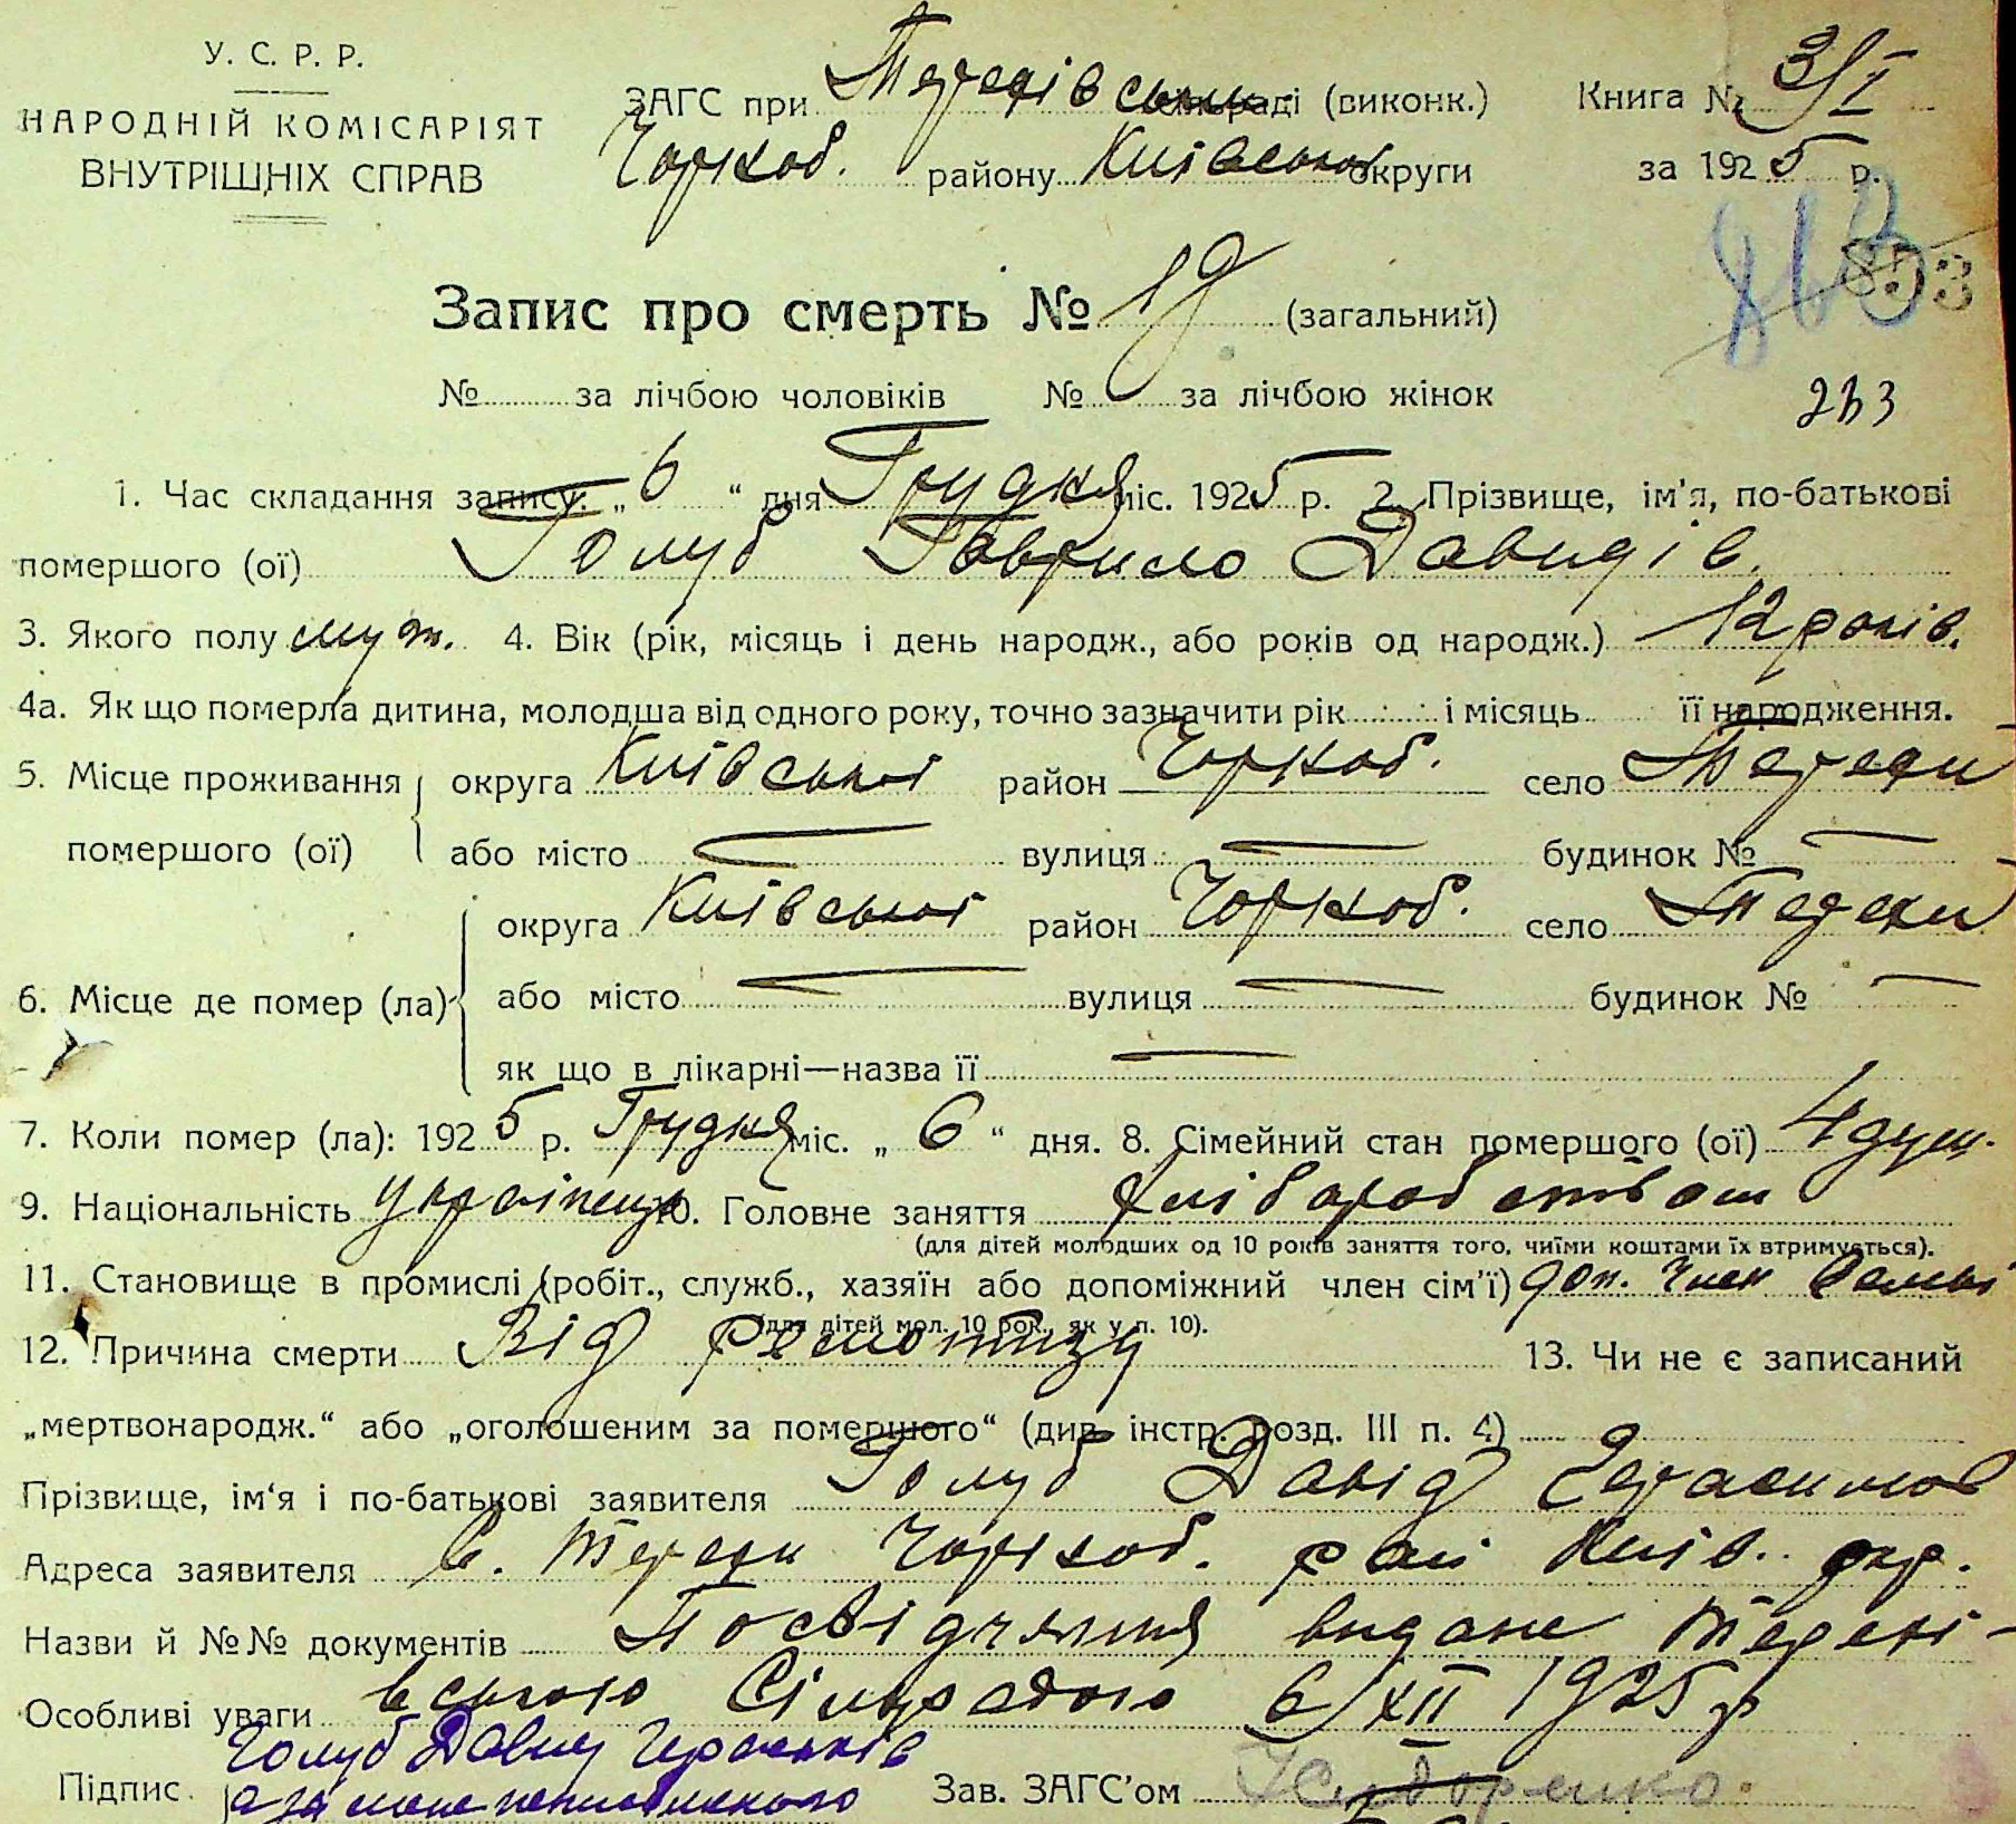 У. С. Р. Р.
НАРОДНІЙ КОМІСАРІЯТ
ВНУТРІШНІХ СПРАВ
ЗАГС при Терехівськ. сільраді (виконк.)
Чорноб. району Київської округи
Книга № 3/I
за 1925 р.
Запис про смерть № 19 (загальний)
№ за лічбою чоловіків № за лічбою жінок
263
1. Час складання запису: „6“ дня Грудня міс. 1925 р. 2. Прізвище, ім'я, по-батькові
помершого (ої) Голуб Гаврило Давидів.
3. Якого полу муж. 4. Вік (рік, місяць і день народж., або років од народж.) 12 років.
4а. Як що померла дитина, молодша від одного року, точно зазначити рік і місяць її народження.
5. Місце проживання помершого (ої) округа Київської район Чорноб. село Терехи
або місто — вулиця — будинок № —
6. Місце де помер (ла) округа Київської район Чорноб. село Терехи
або місто — вулиця — будинок № —
як що в лікарні—назва її —
7. Коли помер (ла): 1925 р. Грудня міс. „6“ дня. 8. Сімейний стан помершого (ої) 4 душ.
9. Національність українець 10. Головне заняття хліборобством
(для дітей молодших од 10 років заняття того, чиїми коштами їх втримується).
11. Становище в промислі (робіт., служб., хазяїн або допоміжний член сім'ї) доп. член семьі
(для дітей мол. 10 рок., як у п. 10).
12. Причина смерти Від ремотизу 13. Чи не є записаний
„мертвонародж.“ або „оголошеним за помершого“ (див. інстр. розд. III п. 4)
Прізвище, ім‘я і по-батькові заявителя Голуб Давід Герасимов
Адреса заявителя с. Терехи Чорноб. рай Київ. окр.
Назви й №№ документів Посвідчення видане Терехі-
Особливі уваги вською Сільрадою 6/XII 1925 р
Голуб Давид Гераськів
Підпис. а за його неписьменного Зав. ЗАГС'ом